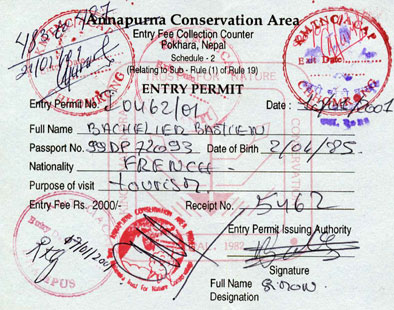 Annapurna Conservation Area
Entry Fee Collection Counter
Pokhara, Nepal
Schedule - 2
(Relating to Sub - Rule (1) of Rule 19)
ENTRY PERMIT
Entry Permit No. 10462/01 Date : 2001
Full Name BACHELIER BASTIEN
Passport No. 99DP72093 Date of Birth 2/04/85.
Nationality FRENCH
Purpose of visit tourism
Entry Fee Rs. 2000/- Receipt No. 5462
Entry Permit Issuing Authority
Signature
Full Name
Designation
KMTNC/ACAP
Exit Date
CHHOMRONG
ANNAPURNA CONSERVATION AREA
Trust for Nature Conservation
1982